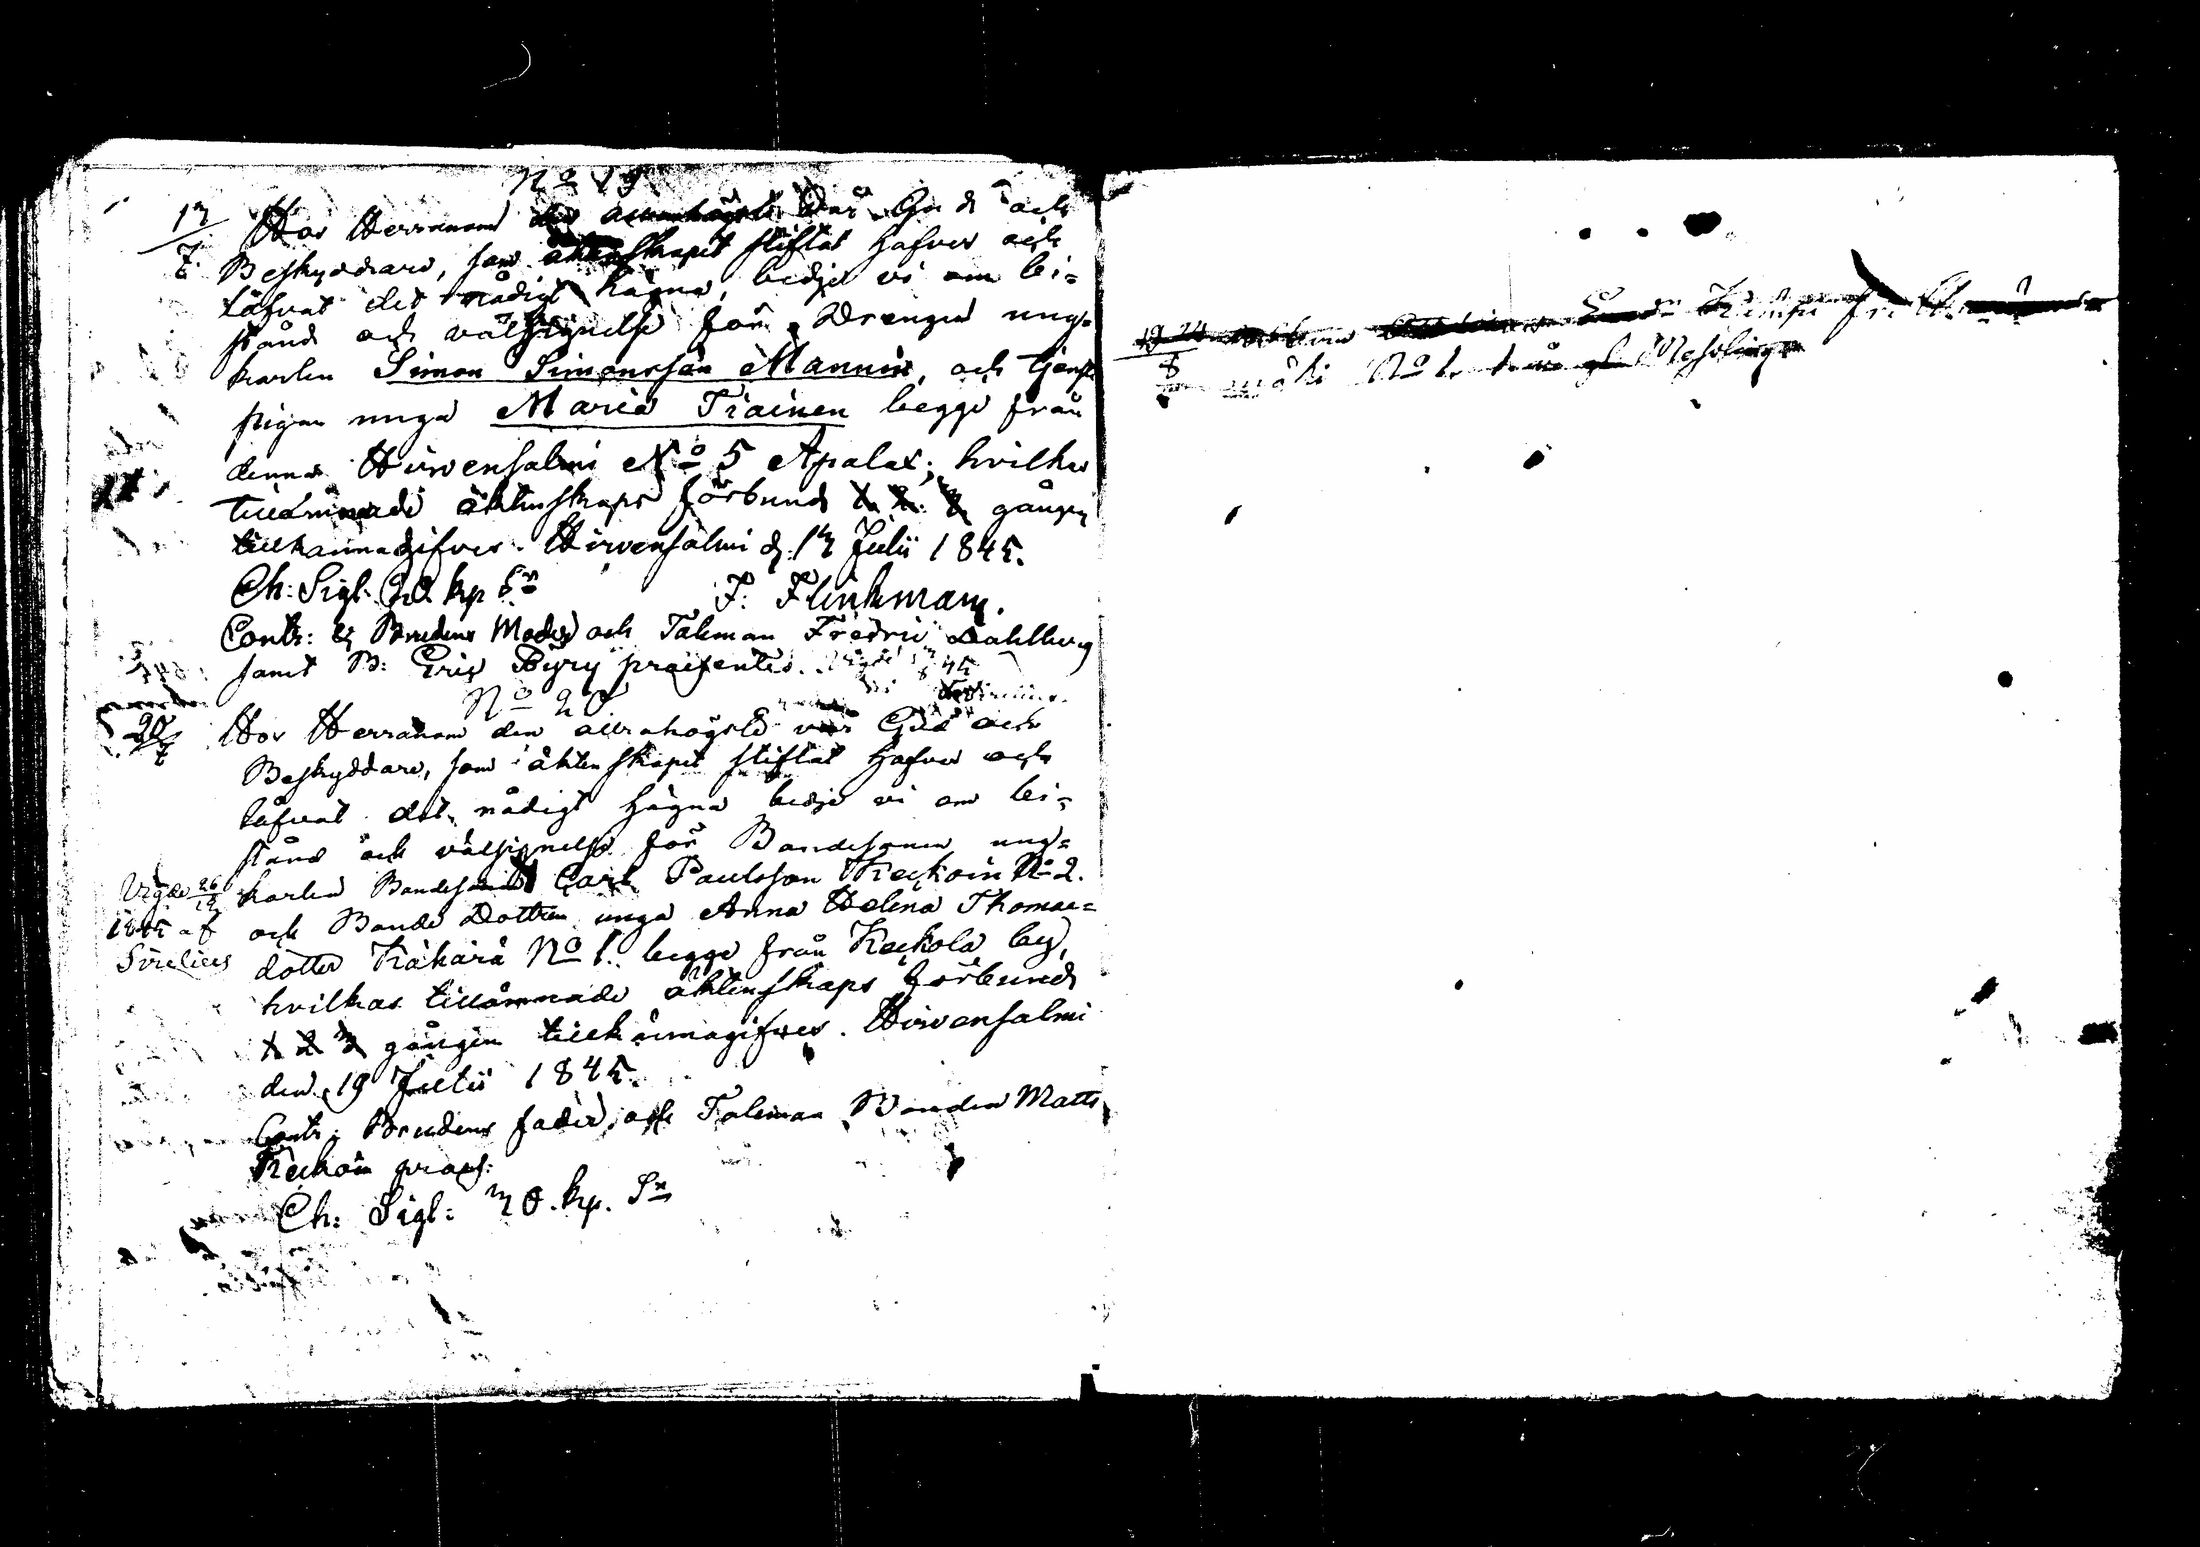 No 19
13
7
Hos Herranom den allrahögste vår Gud och
Beskyddare, som äktenskapet stiftat hafver och
låfvat det nådigt hägna, bedje vi om bi=
stånd och välsignelse för Drengen ung=
karlen Simon Simonsson Manninen, och tjenste
pigan unga Maria Tiainen begge från
denna Hirvensalmi No 5 Apalax; hvilkas
tillämnade äktenskaps förbund 1. 2. 3. gången
tillkännagifves. Hirvensalmi d. 13 Julii 1845.
Ch: Sigl: 30 kp Sr
F: Flinkman.
Contr: Brudens Moder och Taleman Fredric Dahlberg
samt B: Eric Pyry præsentes.
No 20
20
7
Hos Herranom den allrahögste vår Gud och
Beskyddare, som äktenskapet stiftat hafver och
låfvat det nådigt hägna bedje vi om bi=
stånd och välsignelse för Bondesonen ung=
karlen Bondesonen Carl Paulsson Keckoin No 2.
och Bonde Dottren unga Anna Helena Thomae=
dotter Kähärä No 1. begge från Keckola by,
hvilkas tillämnade äktenskaps förbund
1 2 3 gången tillkännagifves. Hirvensalmi
den 19 Julii 1845.
Contr: Brudens fader, och Taleman Bonden Matts
Keckoin præs:
Ch: Sigl: 30. kp. Sr
Vigde 26/12
1845 af
Sirelius
8
No 1.